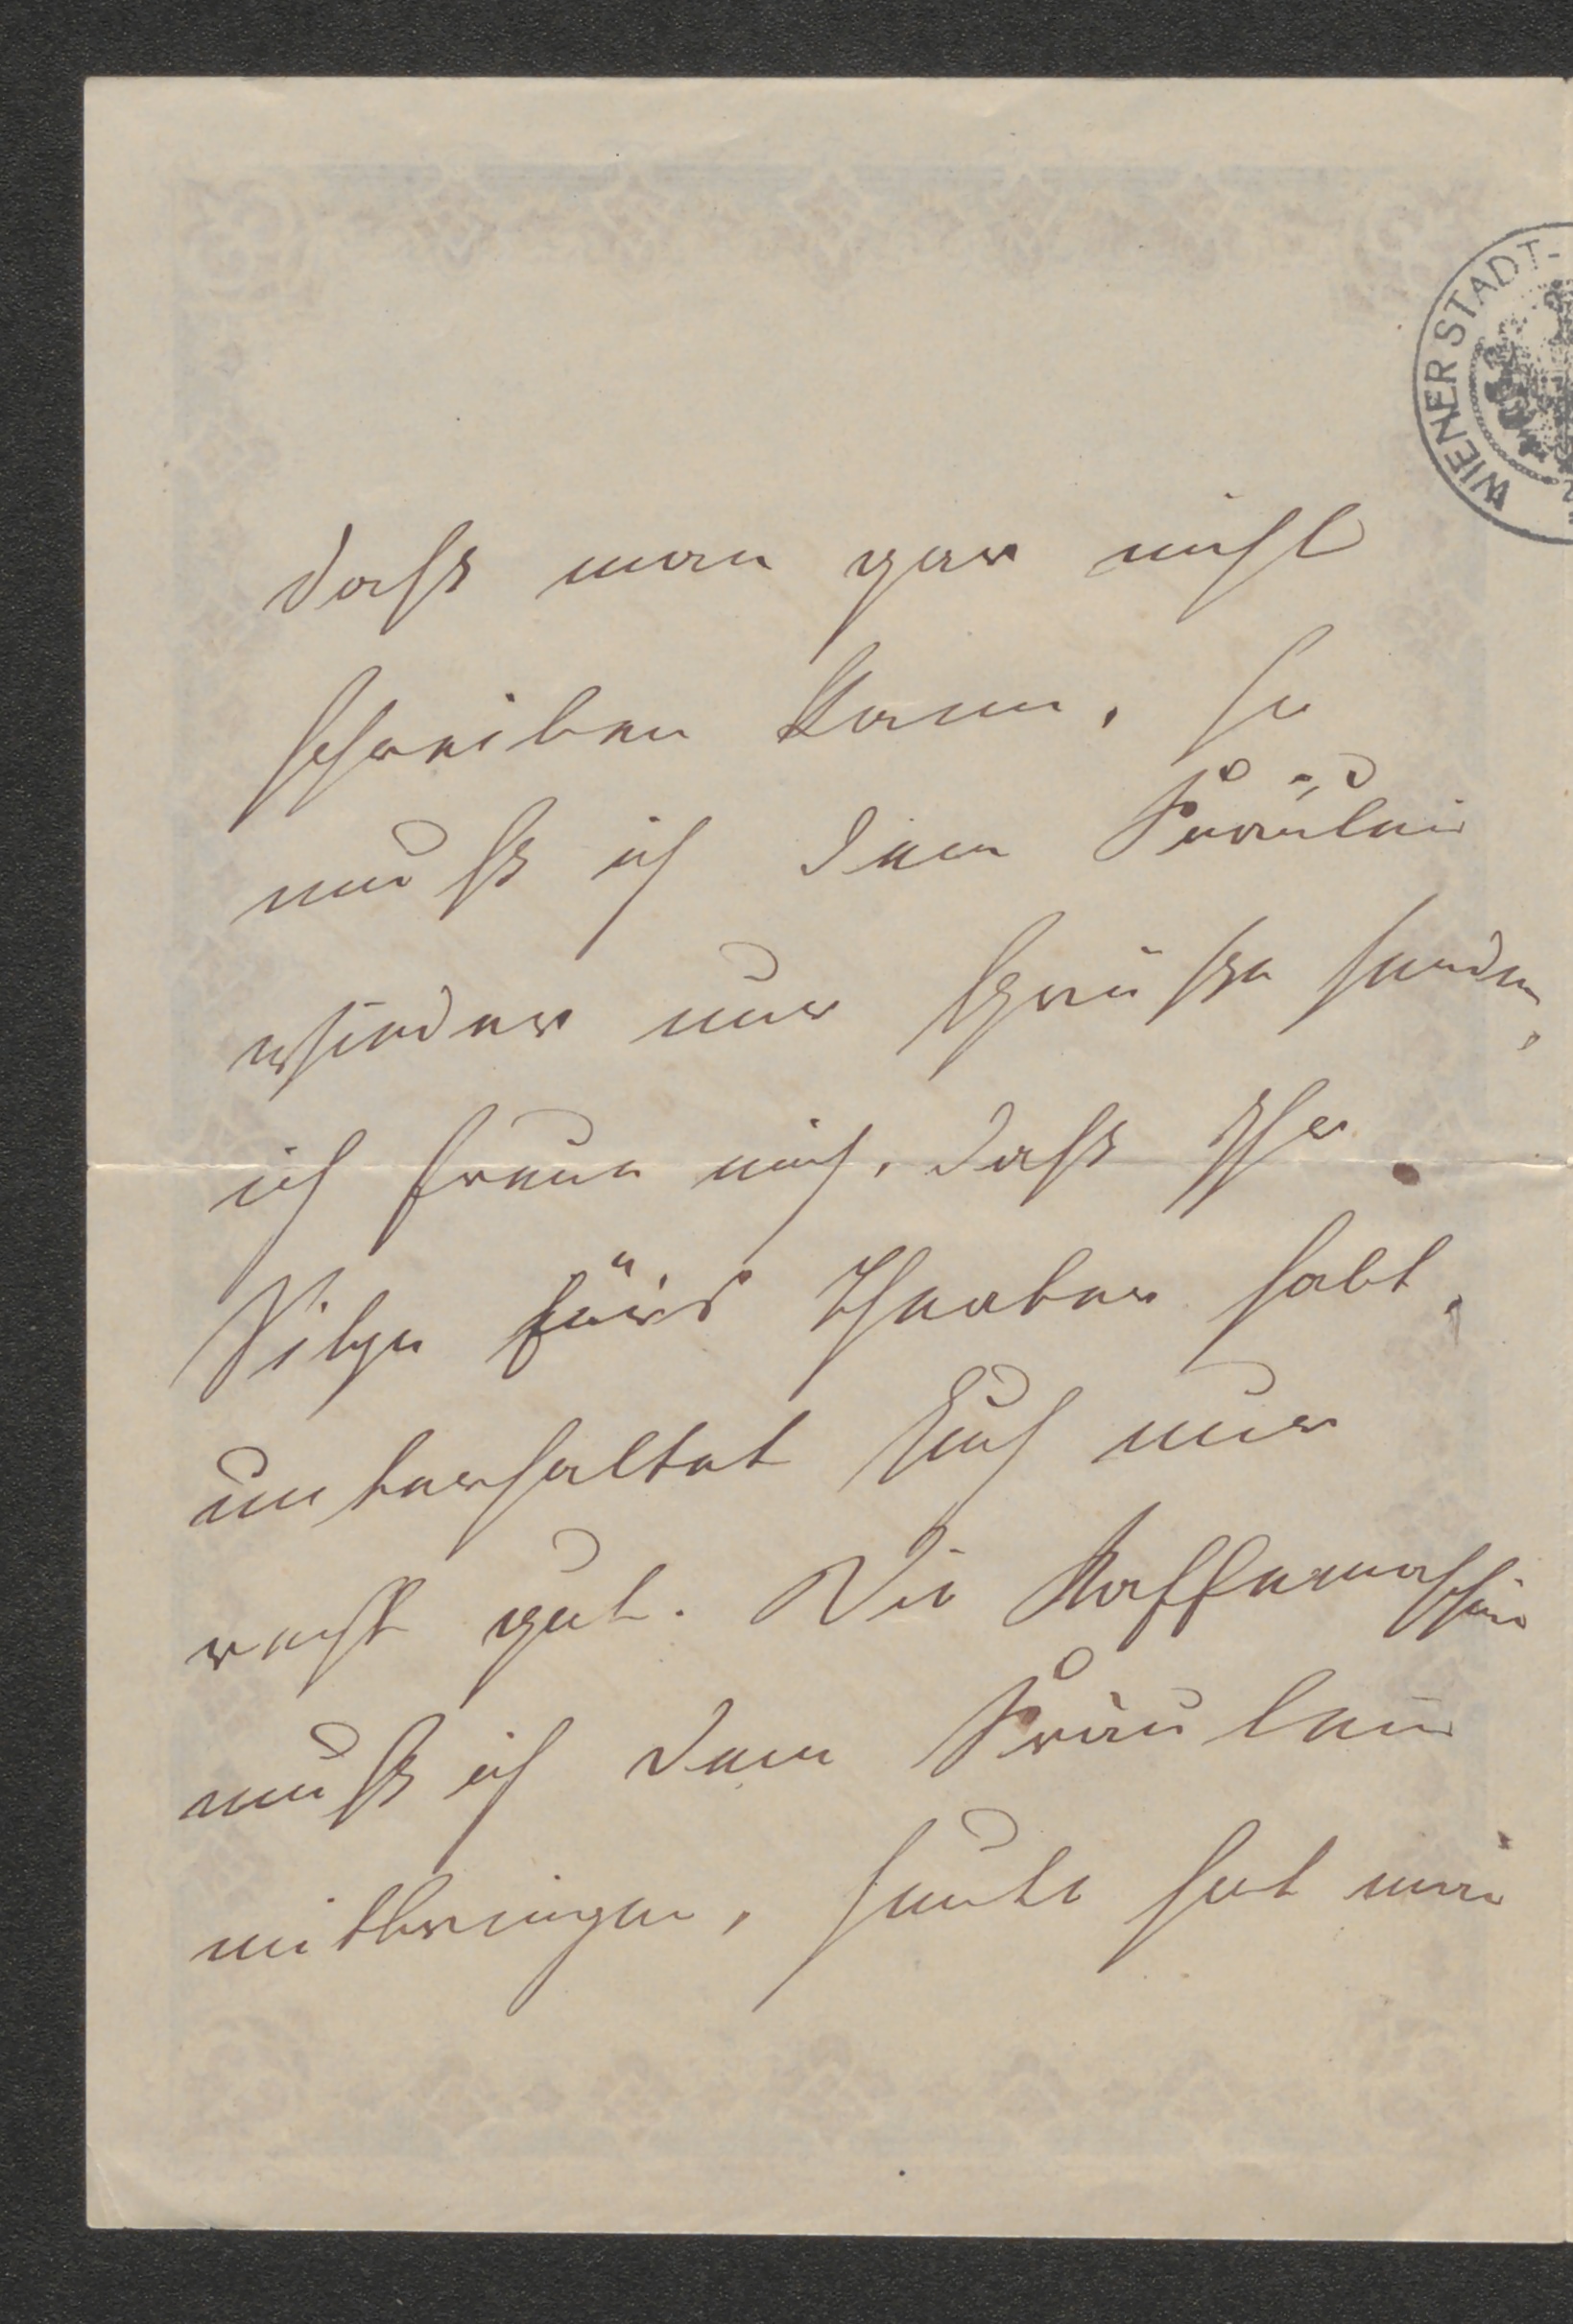 WIENER STADT-
daß man gar nicht
schreiben kann, so
muß ich dem Fräulein
wieder nur Grüße senden,
ich freue mich, daß Ihr
Sitze fürs Theater habt,
unterhaltet Euch nur
recht gut. Die Kaffemaschin
muß ich dem Fräulein
mitbringen, heute hat man